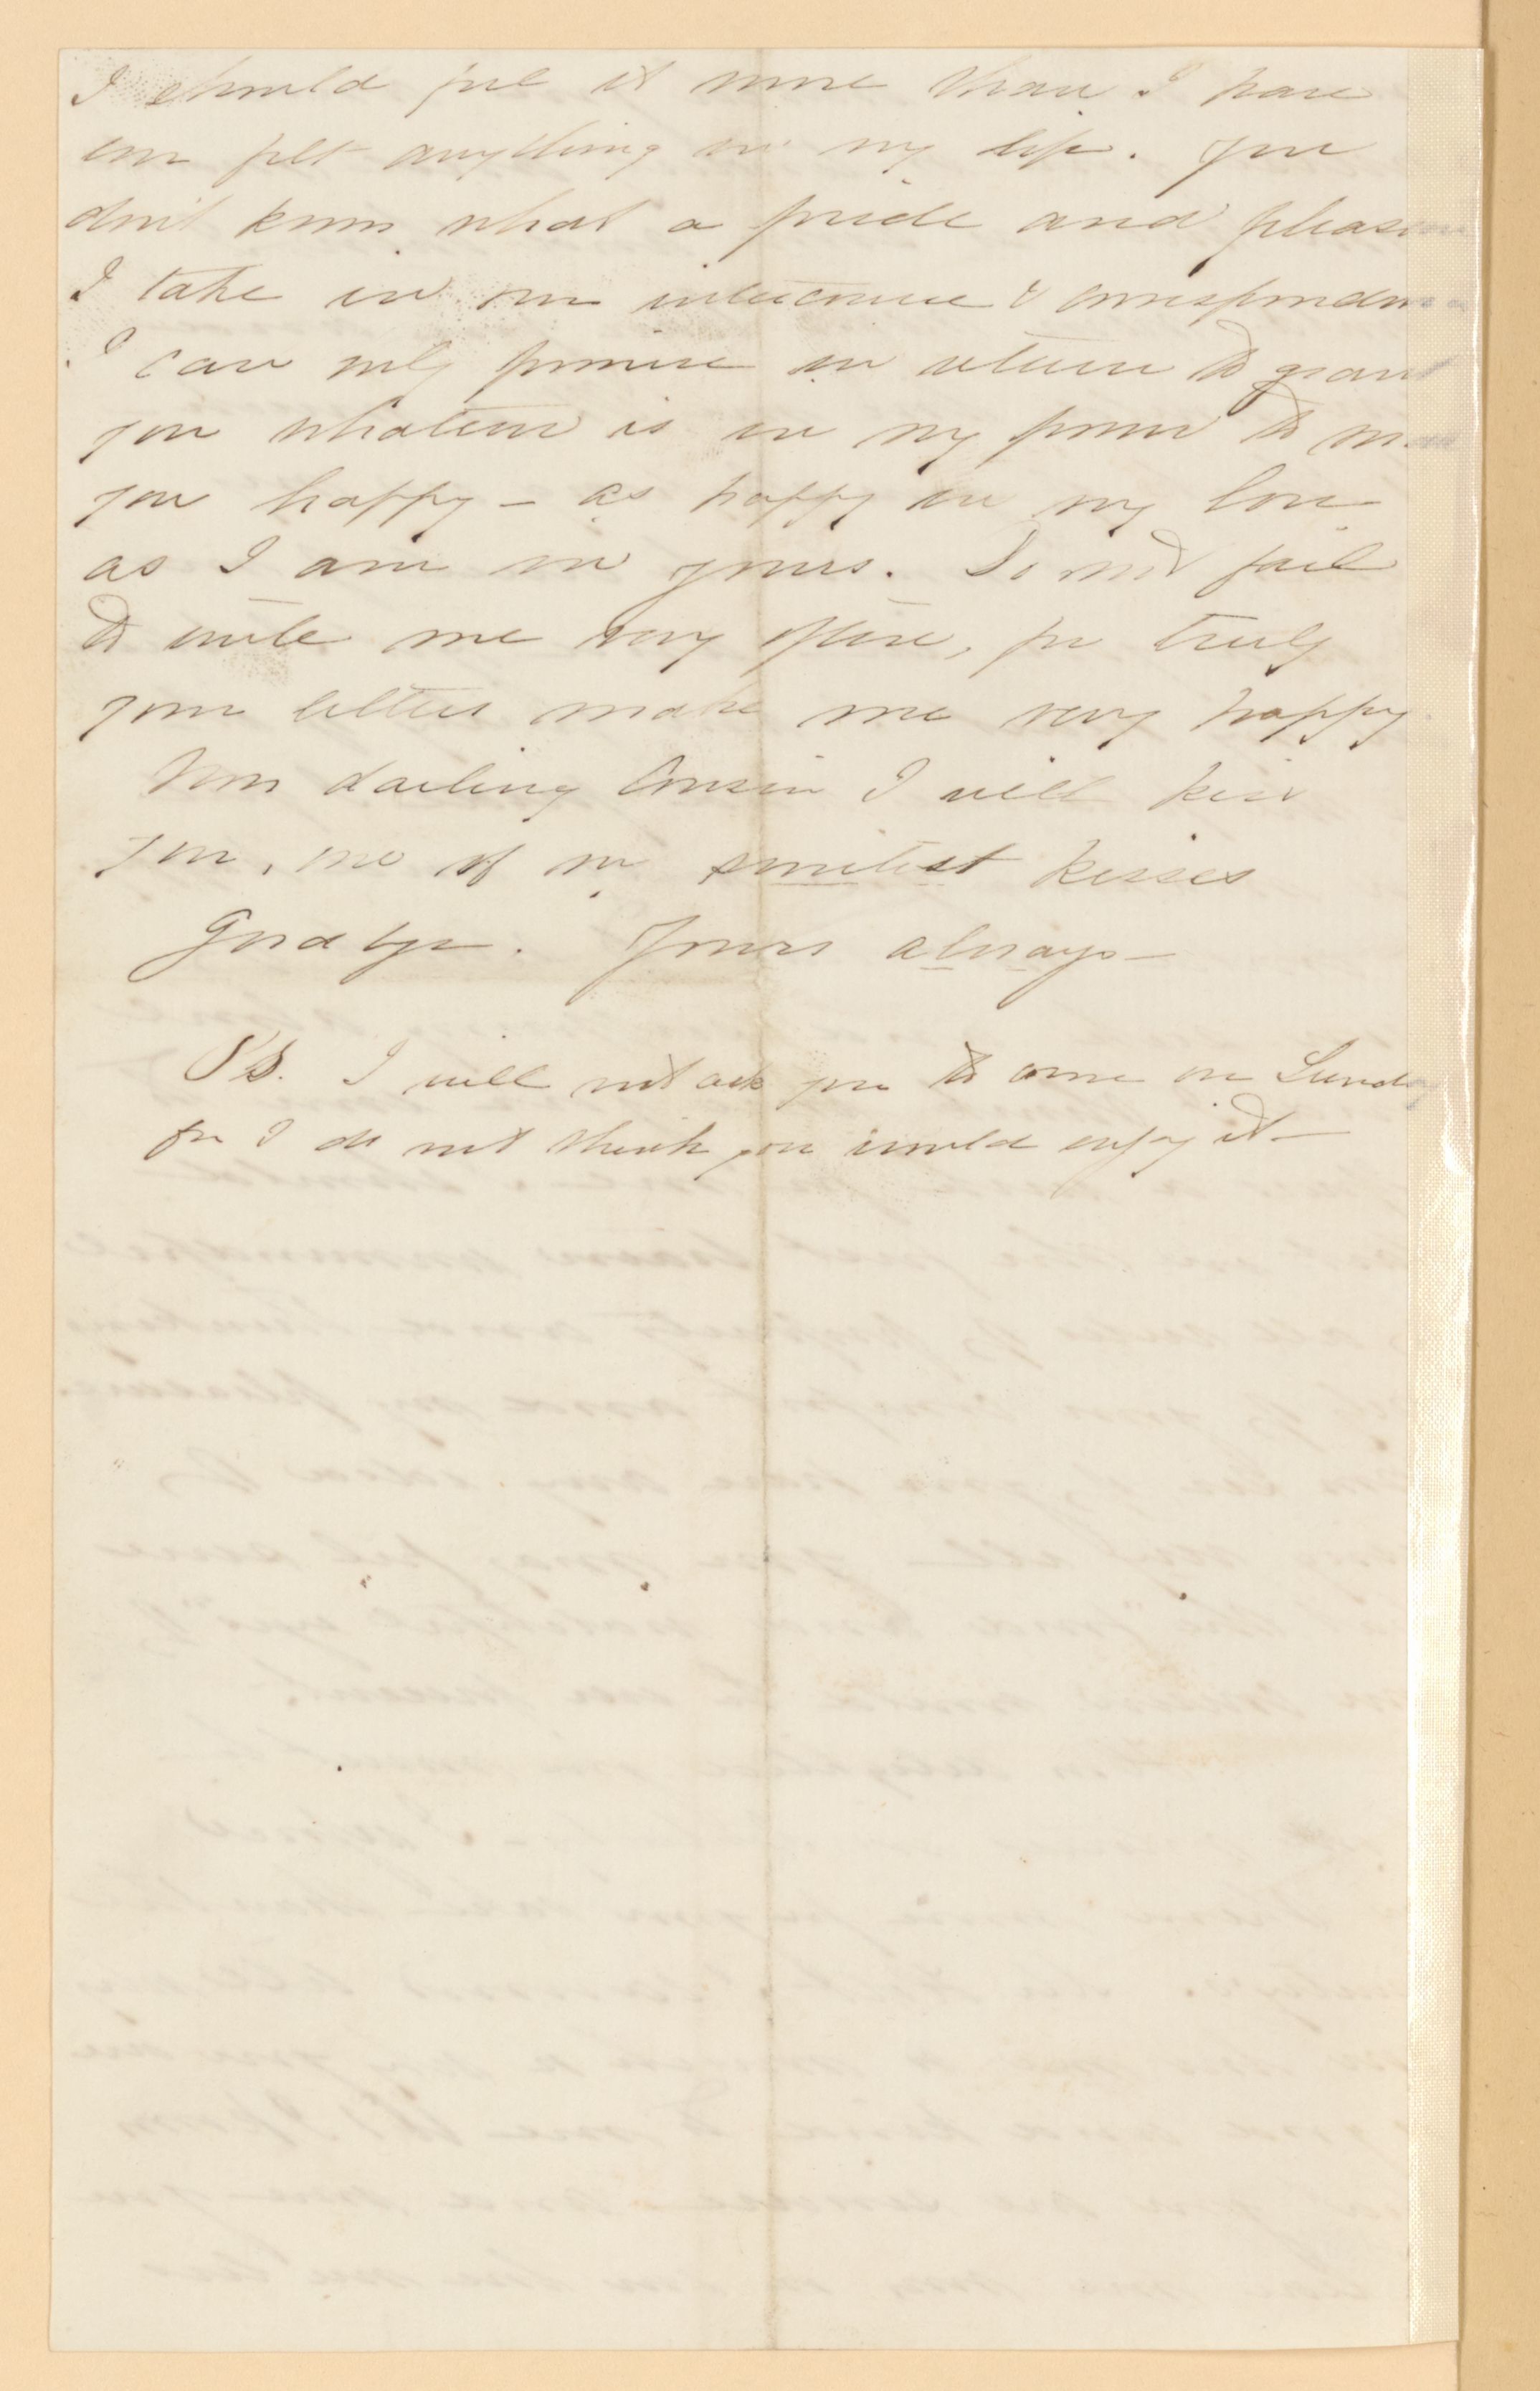 I should feel it more than I have
ever felt anything in my life. You
don't know what a pride and pleasure
I take in our intercourse & correspondence
I can only promise in return to grant
you whatever is in my power to make
you happy – as happy in my love
as I am in yours. Do not fail
to write me very often, for truly
your letters make me very happy
Now darling Cousin I will kiss
you, one of my sweetest kisses
Good bye. Yours always –
P.S. I will not ask you to come on Sunday
for I do not think you would enjoy it –